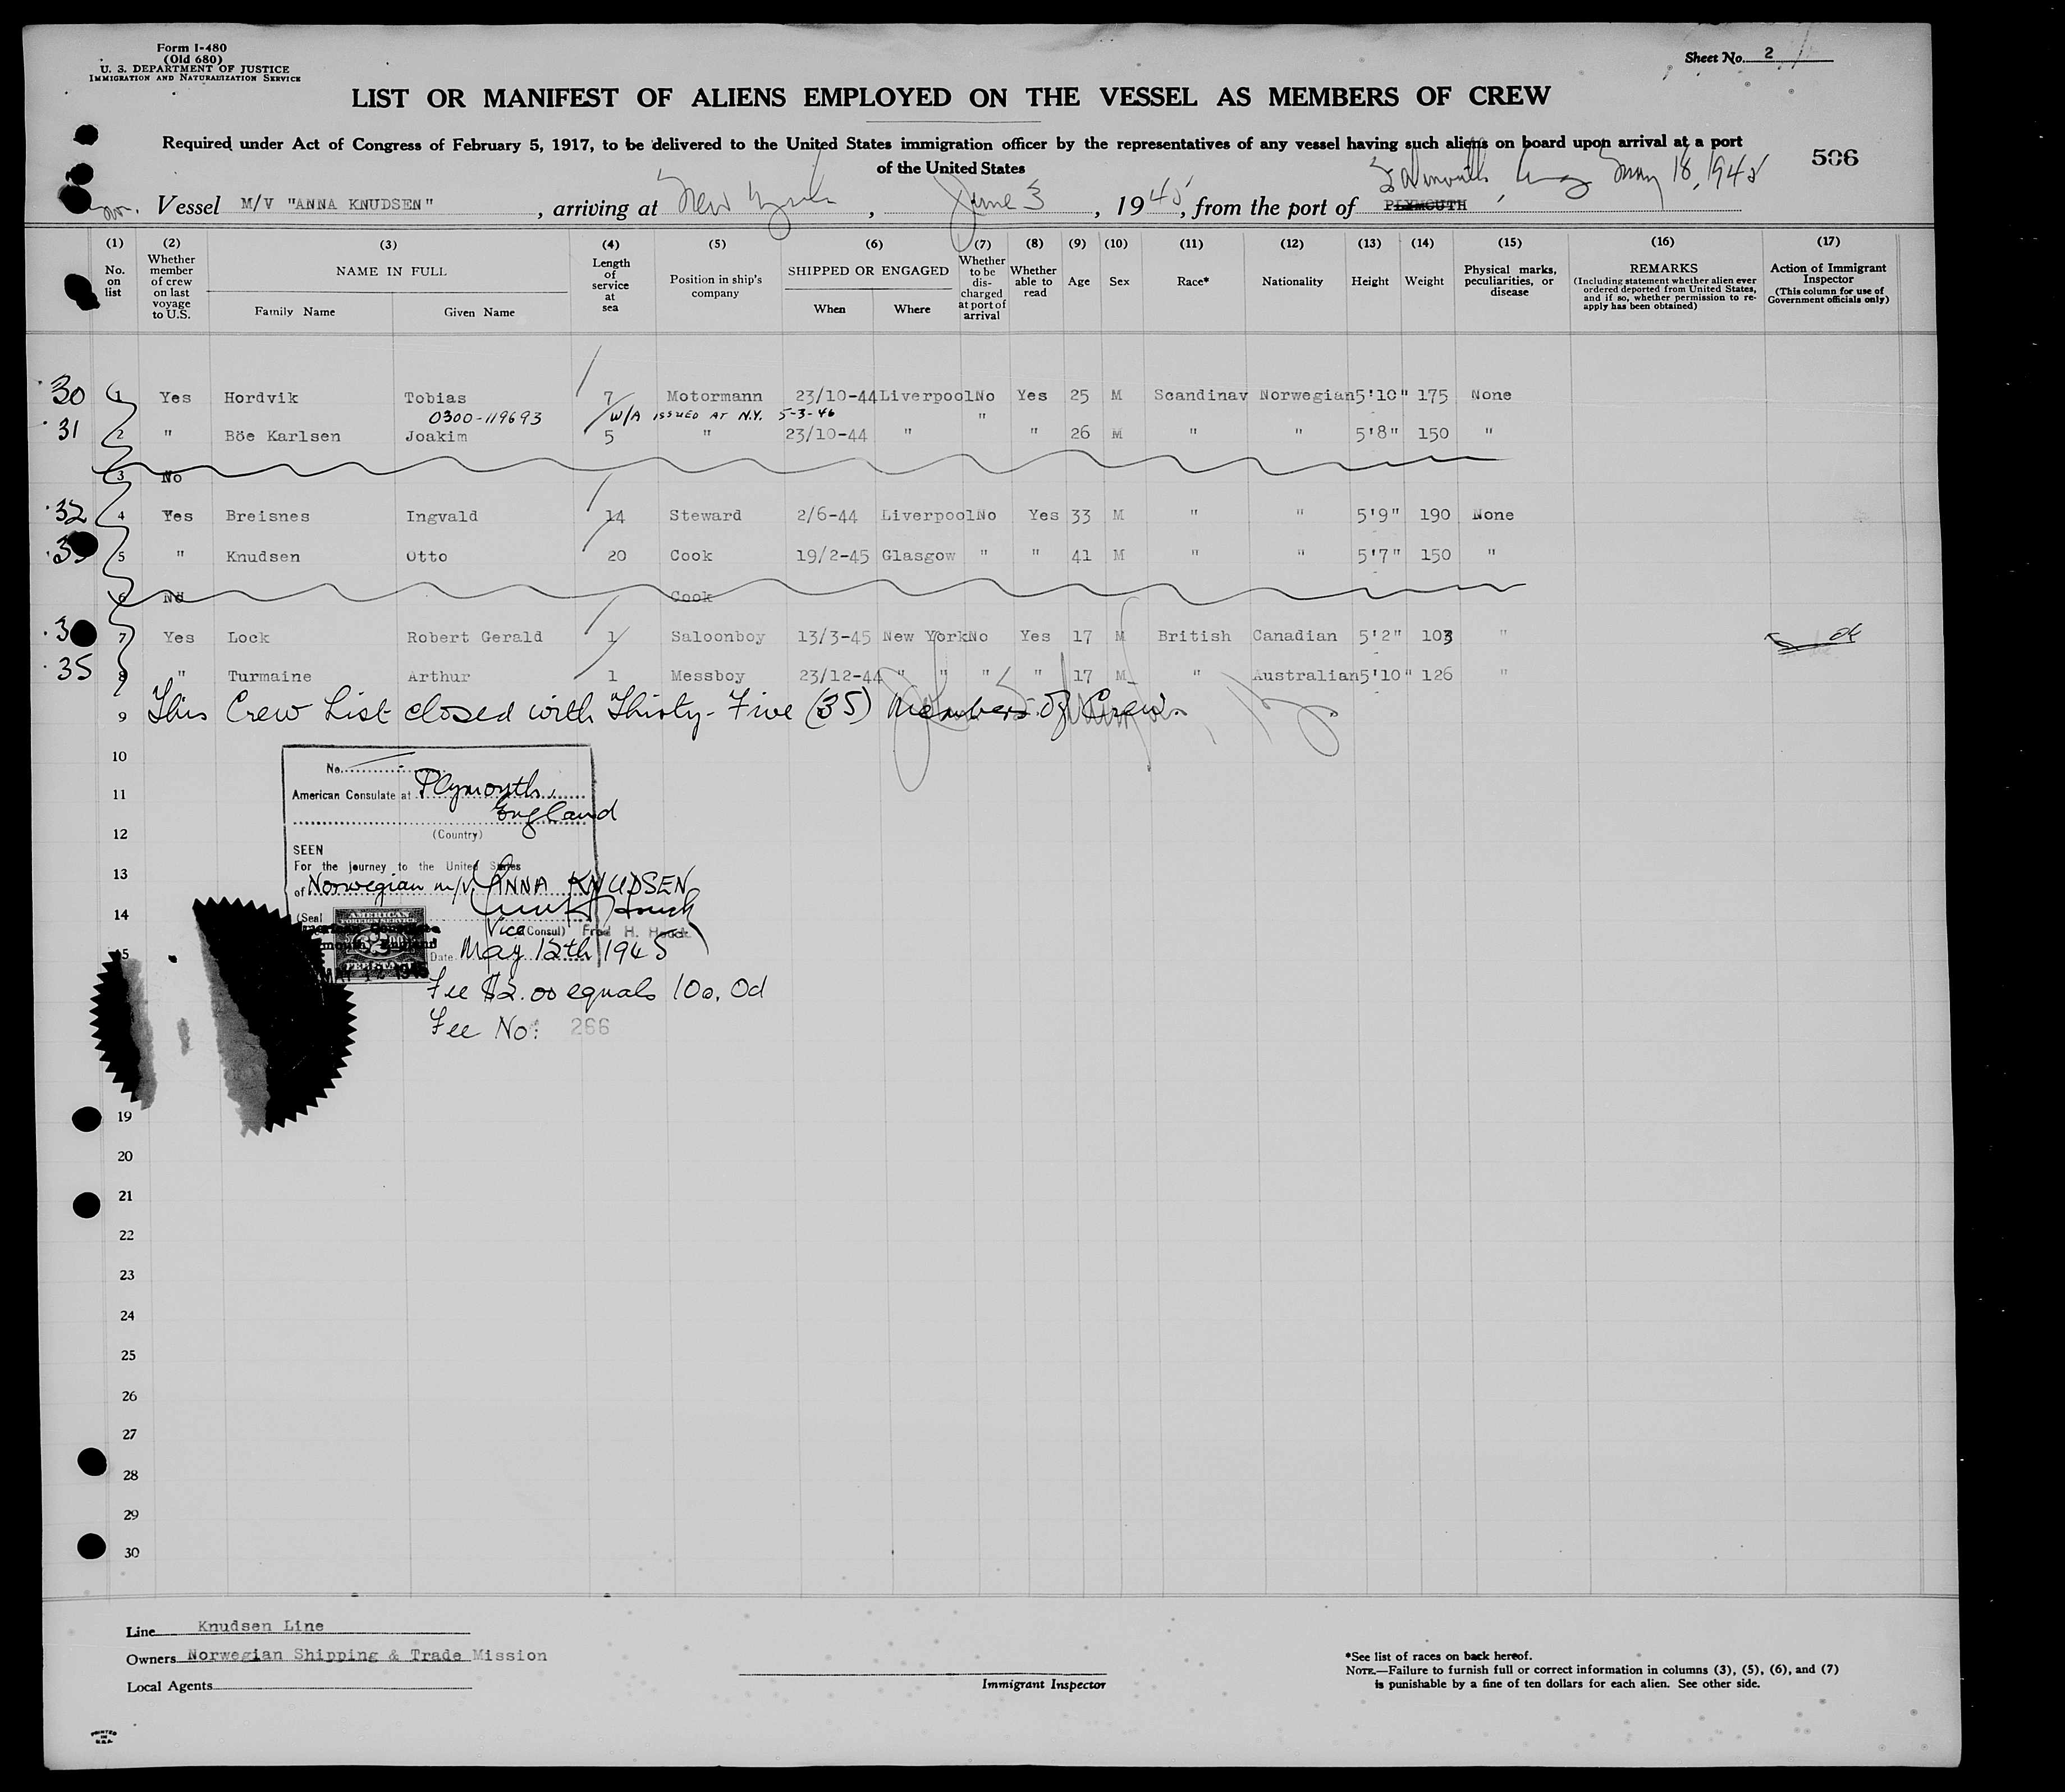 Form I-480
(Old 680)
U. S. DEPARTMENT OF JUSTICE
IMMIGRATION AND NATURALIZATION SERVICE
Sheet No. 2
LIST OR MANIFEST OF ALIENS EMPLOYED ON THE VESSEL AS MEMBERS OF CREW
Required under Act of Congress of February 5, 1917, to be delivered to the United States immigration officer by the representatives of any vessel having such aliens on board upon arrival at a port
of the United States
506
Vessel M/V "ANNA KNUDSEN", arriving at New York, June 3, 1945, from the port of PLYMOUTH May 18, 1945
(1) (2) (3) (4) (5) (6) (7) (8) (9) (10) (11) (12) (13) (14) (15) (16) (17)
No. on list
Whether member of crew on last voyage to U.S.
NAME IN FULL
Family Name
Given Name
Length of service at sea
Position in ship's company
SHIPPED OR ENGAGED
When
Where
Whether to be discharged at port of arrival
Whether able to read
Age
Sex
Race*
Nationality
Height
Weight
Physical marks, peculiarities, or disease
REMARKS
(Including statement whether alien ever ordered deported from United States, and if so, whether permission to reapply has been obtained)
Action of Immigrant Inspector
(This column for use of Government officials only)
30 1 Yes Hordvik Tobias 7 Motormann 23/10-44 Liverpool No Yes 25 M Scandinav Norwegian 5'10" 175 None
0300-119693 W/A ISSUED AT N.Y. 5-3-46 "
31 2 " Böe Karlsen Joakim 5 " 23/10-44 " " 26 M " " 5'8" 150 "
3 No
32 4 Yes Breisnes Ingvald 14 Steward 2/6-44 Liverpool No Yes 33 M " " 5'9" 190 None
3 5 " Knudsen Otto 20 Cook 19/2-45 Glasgow " " 41 M " " 5'7" 150 "
6 No Cook
3 7 Yes Lock Robert Gerald 1 Saloonboy 13/3-45 New York No Yes 17 M British Canadian 5'2" 103 " ok
35 8 " Turmaine Arthur 1 Messboy 23/12-44 " " " " 17 M " Australian 5'10" 126 "
9 This Crew List closed with Thirty-Five (35) Members of Crew.
10
No.
11
American Consulate at Plymouth,
England
12
(Country)
SEEN
For the journey to the United States
13
of Norwegian m/v ANNA KNUDSEN
14
(Seal
AMERICAN
FOREIGN SERVICE
Vice (Consul) Fred H. Houck
15
Date May 12th 1945
Fee $2.00 equals 10s. 0d
Fee No: 266
19
20
21
22
23
24
25
26
27
28
29
30
Line Knudsen Line
Owners Norwegian Shipping & Trade Mission
Local Agents
Immigrant Inspector
*See list of races on back hereof.
NOTE.—Failure to furnish full or correct information in columns (3), (5), (6), and (7)
is punishable by a fine of ten dollars for each alien. See other side.
PRINTED
IN
U.S.A.